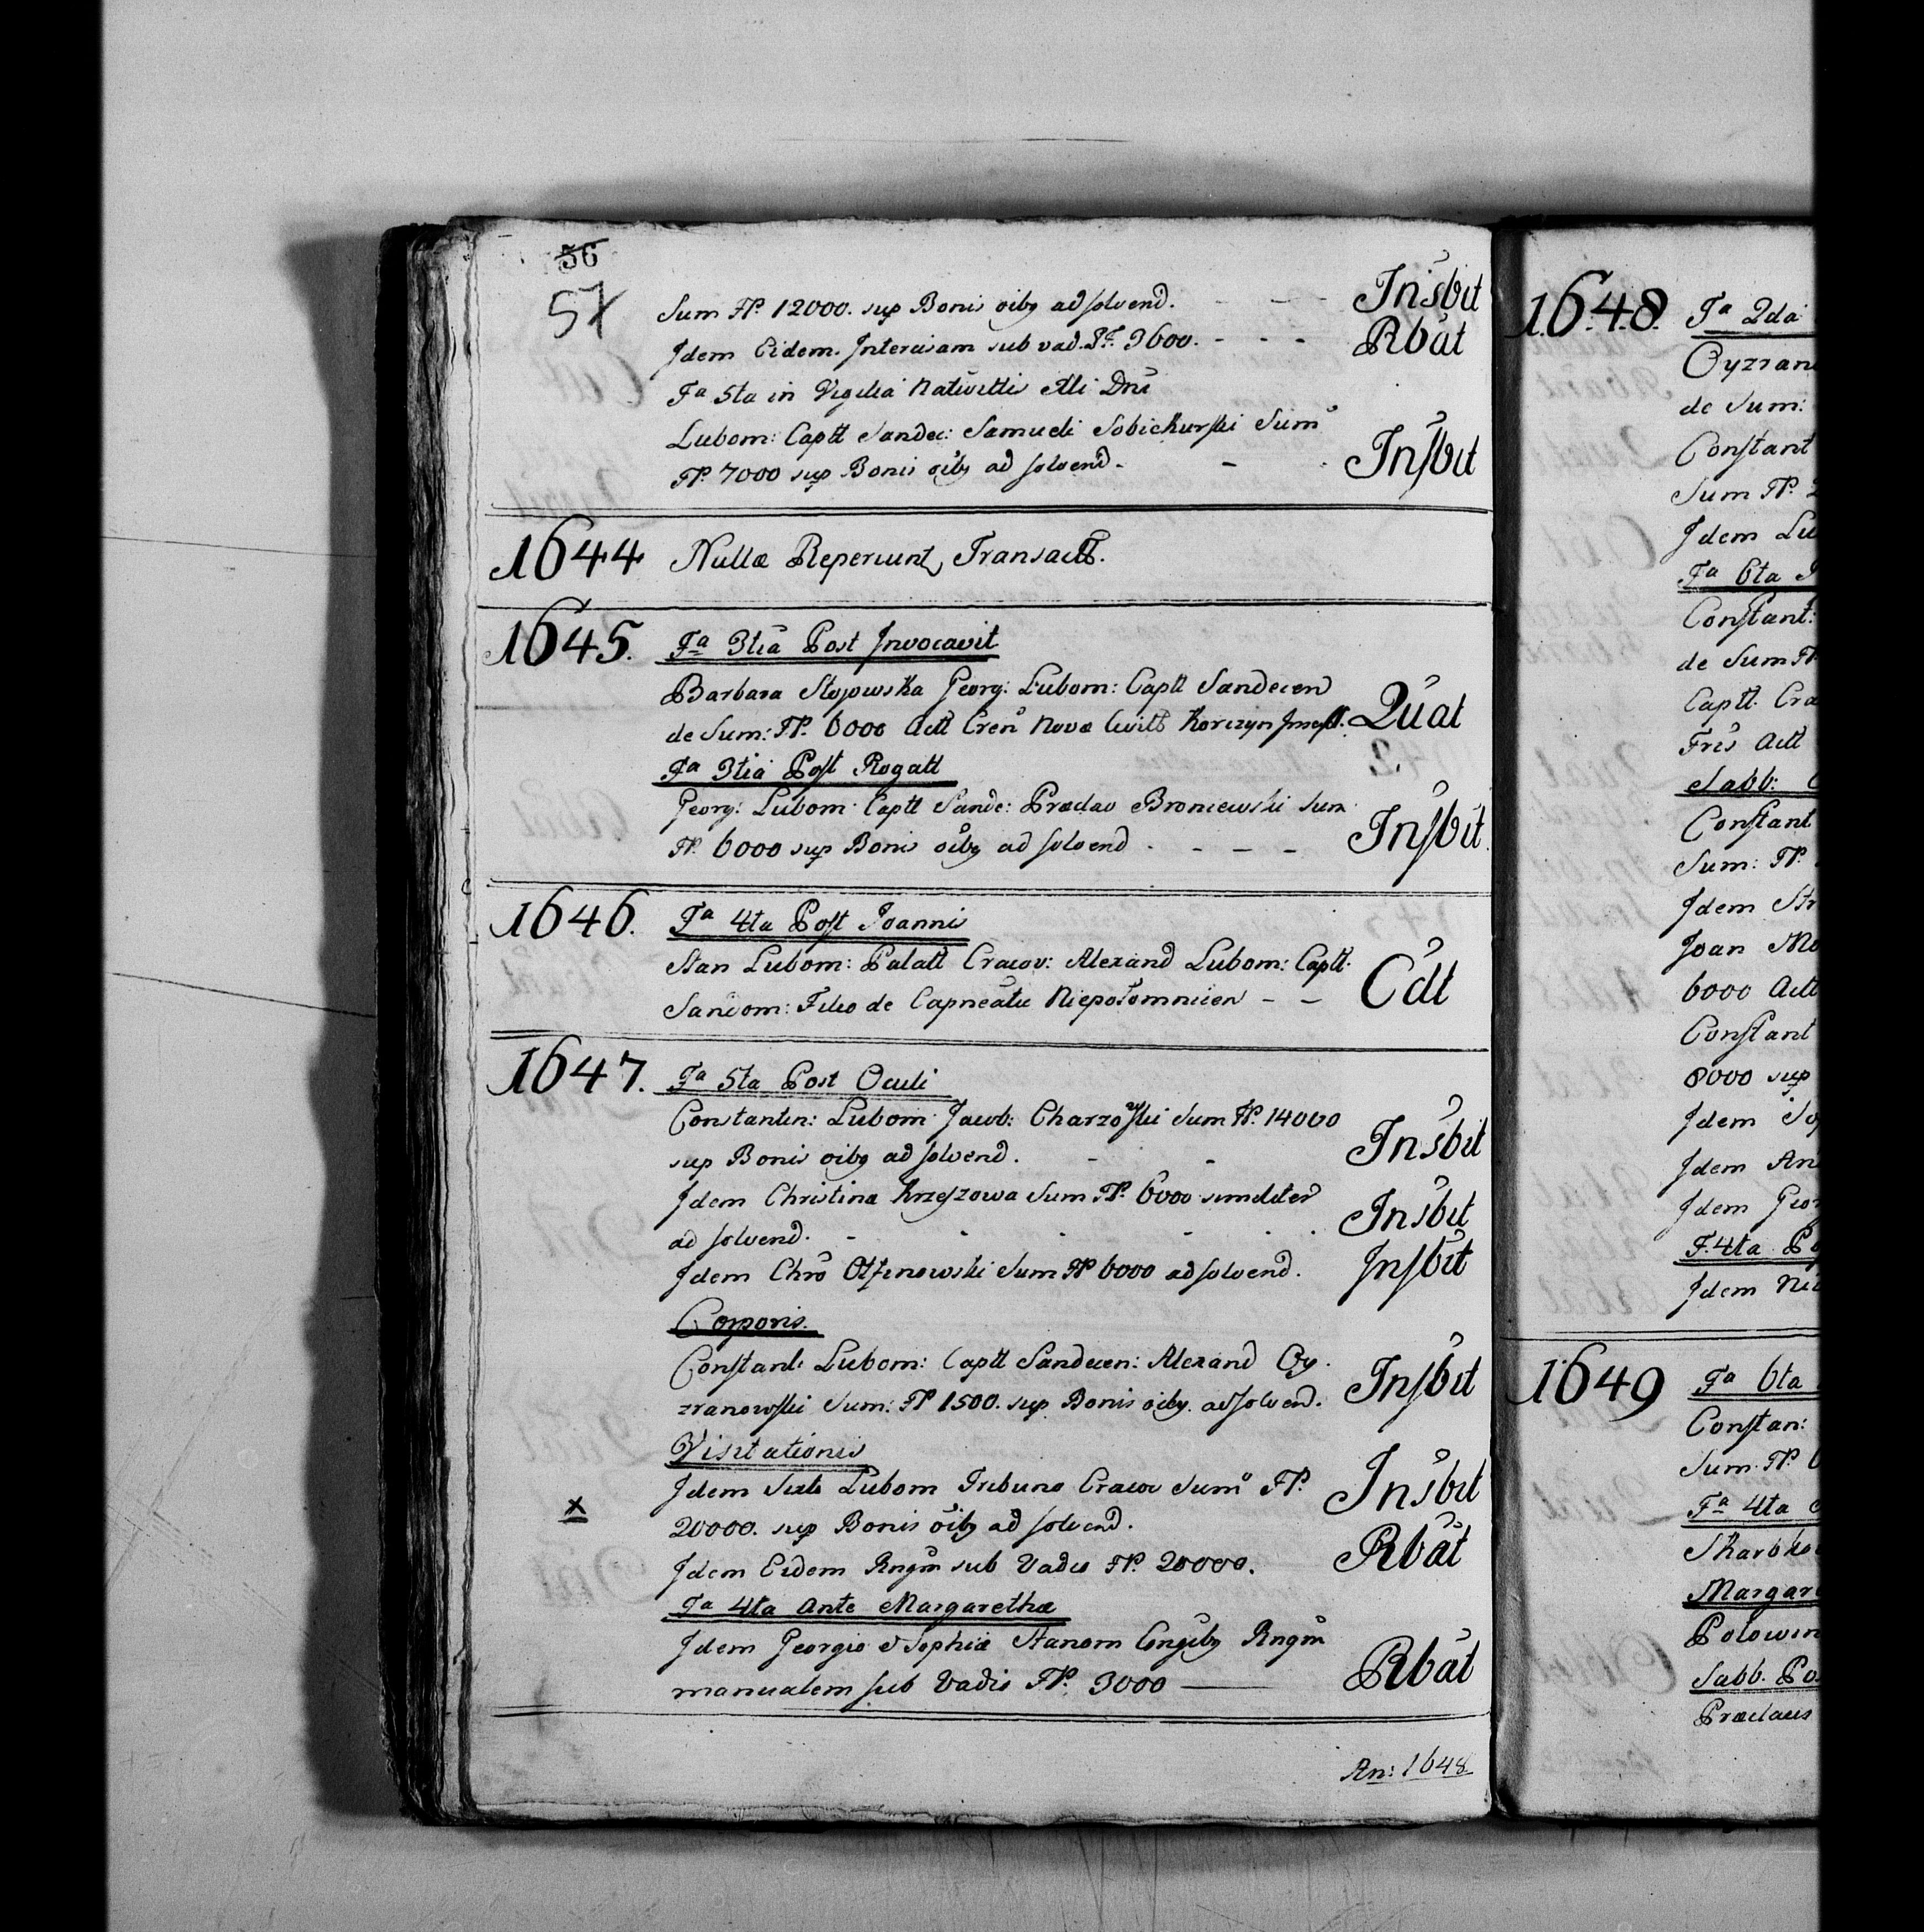 56
57
Sum FP. 12000. sup Bonis oibg ad solvend. - - - Insbit
Idem Eidem. Intercisam sub vad. 3600. - - - Rbat
Fa 5ta in Vigilia Nativitti Dni
Lubom: Captt Sandec: Samueli Sobiekurski Sum
FP. 7000 sup Bonis oibg ad solvend - - Insbit
1644 Nullæ Reperiunt Transactt.
1645. Fa 3tia Post Invocavit
Barbara Stojowska Georg: Lubom: Captt Sandecen
de Sum: FP. 6000 Actt Cren Novæ Civitt Korczyn Quat
Fa 3tia Post Rogatt
Georg: Lubom: Captt Sande: Præclao Broniewski Sum
FP. 6000 sup Bonis oibg ad solvend - - - - Insbit
1646. Fa 4ta Post Joannis
Stan Lubom: Palatt Cracov: Alexand Lubom: Captt
Sandom: Filio de Capneatu Niepołomnicen - - Cdt
1647. Fa 5ta Post Oculi
Constantin: Lubom: Jacob: Charzowski Sum FP. 14000
sup Bonis oibg ad solvend. - - Insbit
Idem Christinæ Krzeszowa Sum FP. 6000 similiter
ad solvend. - - - - Insbit
Idem Chro Sum FP 6000 ad solvend. Insbit
Corporis.
Constant: Lubom: Captt Sandecen: Alexand Oy
zranowski Sum: FP 1500. sup Bonis oibg. ad solvend. Insbit
Visitationis
Idem Lubom Tribuno Cracov Sum FP. Insbit
x 20000. sup Bonis oibg ad solvend.
Idem Eidem Rngm sub Vadio FP. 20000. Rbat
Fa 4ta Ante Margarethæ
Idem Georgio & Sophiæ Stanom Congibg Rngm
manualem sub Vadis FP. 3000 — Rbat
An: 1648
1648. Fa 2da
Oyzran
de Sum:
Constant
Sum FP. 2
Idem Lu
Fa 6ta
Constant:
de Sum FP
Captt. Cra
Fris Actt
Sabb:
Constant
Sum: FP.
Idem Str
Joan Mo
6000 Actt
Constant
8000 sup
Idem So
Idem An
Idem Geor
F. 4ta Po
Idem Ni
1649 Fa 6ta
Constan:
Sum FP. 6
Fa 4ta
Skarbko
Margar
Polowin
Sabb. Po
Præclaus